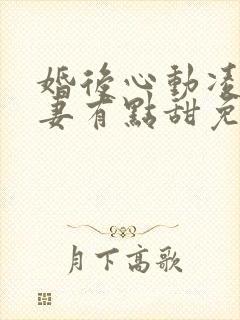 婚後心動凌
妻有點甜免
月下高歌